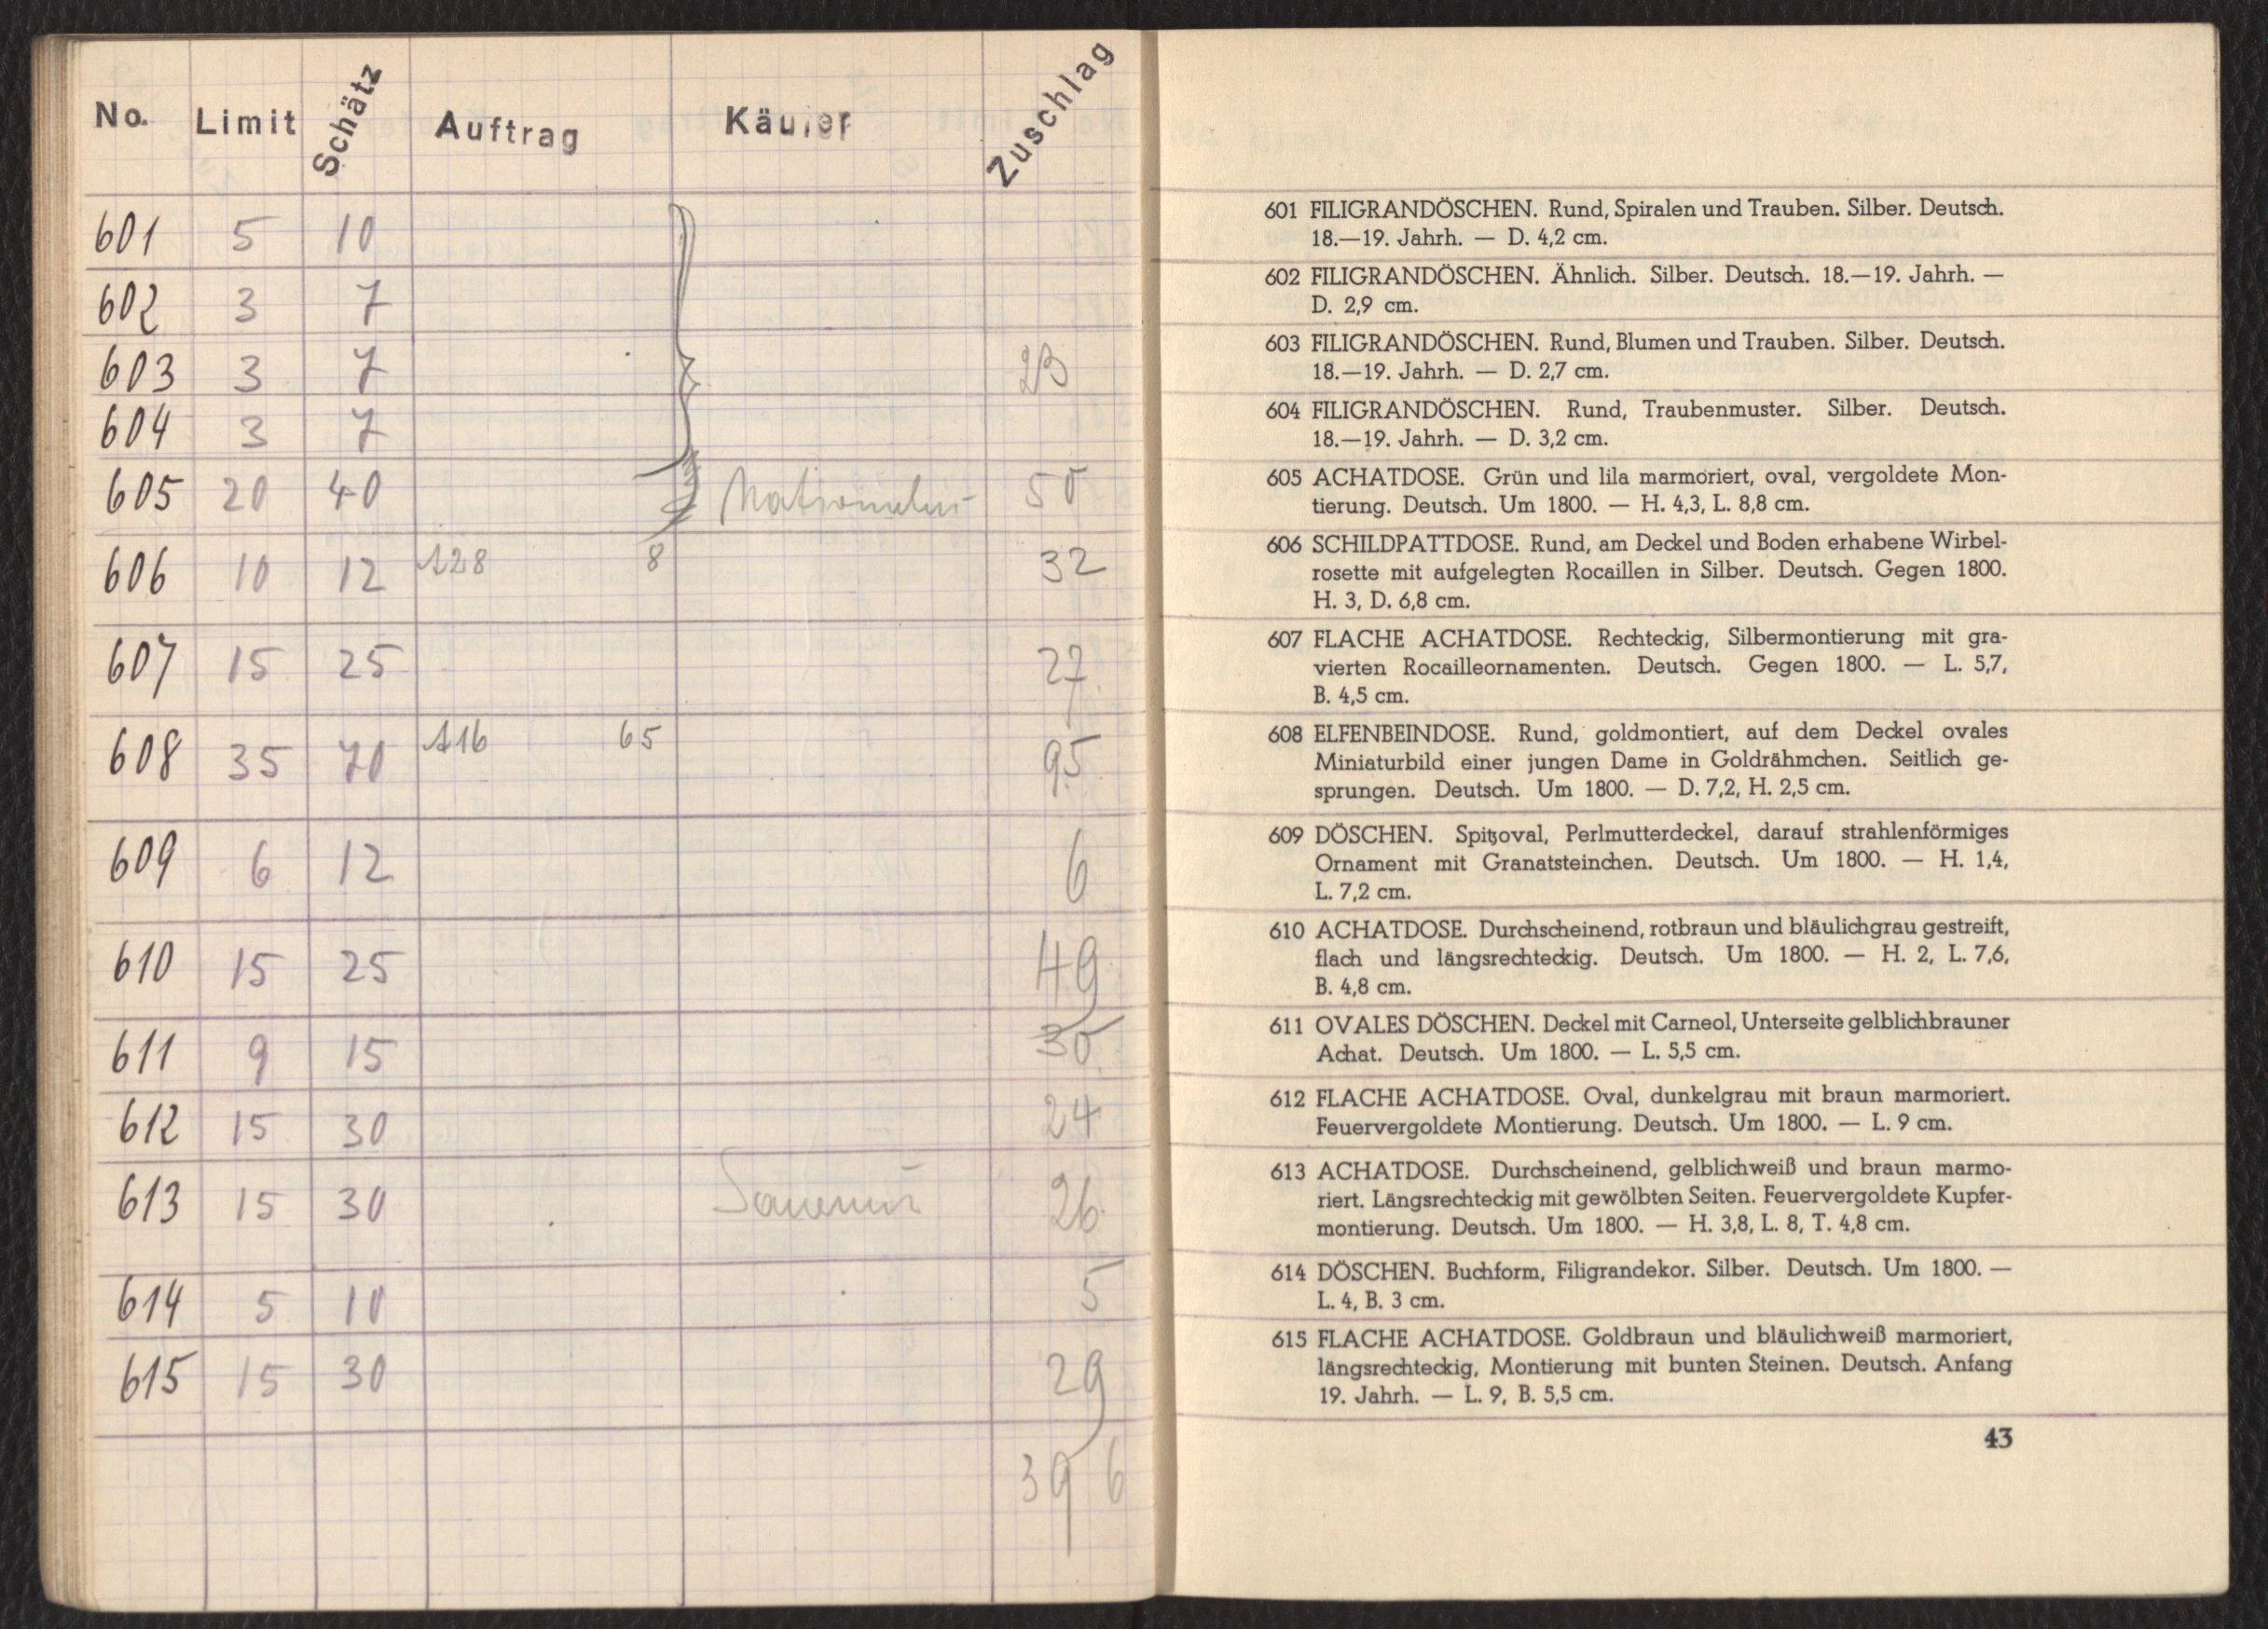 No. Limit Schätz Auftrag Käufer Zuschlag
601 5 10
602 3 7
603 3 7 23
604 3 7
605 20 40 50
606 10 12 A28 8 32
607 15 25 27
608 35 70 A16 65 95
609 6 12 6
610 15 25 49
611 9 15 30
612 15 30 24
613 15 30 26
614 5 10 5
615 15 30 29
396
601 FILIGRANDÖSCHEN. Rund, Spiralen und Trauben. Silber. Deutsch.
18.—19. Jahrh. — D. 4,2 cm.
602 FILIGRANDÖSCHEN. Ähnlich. Silber. Deutsch. 18.—19. Jahrh. —
D. 2,9 cm.
603 FILIGRANDÖSCHEN. Rund, Blumen und Trauben. Silber. Deutsch.
18.—19. Jahrh. — D. 2,7 cm.
604 FILIGRANDÖSCHEN. Rund, Traubenmuster. Silber. Deutsch.
18.—19. Jahrh. — D. 3,2 cm.
605 ACHATDOSE. Grün und lila marmoriert, oval, vergoldete Mon-
tierung. Deutsch. Um 1800. — H. 4,3, L. 8,8 cm.
606 SCHILDPATTDOSE. Rund, am Deckel und Boden erhabene Wirbel-
rosette mit aufgelegten Rocaillen in Silber. Deutsch. Gegen 1800.
H. 3, D. 6,8 cm.
607 FLACHE ACHATDOSE. Rechteckig, Silbermontierung mit gra-
vierten Rocailleornamenten. Deutsch. Gegen 1800. — L. 5,7,
B. 4,5 cm.
608 ELFENBEINDOSE. Rund, goldmontiert, auf dem Deckel ovales
Miniaturbild einer jungen Dame in Goldrähmchen. Seitlich ge-
sprungen. Deutsch. Um 1800. — D. 7,2, H. 2,5 cm.
609 DÖSCHEN. Spitzoval, Perlmutterdeckel, darauf strahlenförmiges
Ornament mit Granatsteinchen. Deutsch. Um 1800. — H. 1,4,
L. 7,2 cm.
610 ACHATDOSE. Durchscheinend, rotbraun und bläulichgrau gestreift,
flach und längsrechteckig. Deutsch. Um 1800. — H. 2, L. 7,6,
B. 4,8 cm.
611 OVALES DÖSCHEN. Deckel mit Carneol, Unterseite gelblichbrauner
Achat. Deutsch. Um 1800. — L. 5,5 cm.
612 FLACHE ACHATDOSE. Oval, dunkelgrau mit braun marmoriert.
Feuervergoldete Montierung. Deutsch. Um 1800. — L. 9 cm.
613 ACHATDOSE. Durchscheinend, gelblichweiß und braun marmo-
riert. Längsrechteckig mit gewölbten Seiten. Feuervergoldete Kupfer-
montierung. Deutsch. Um 1800. — H. 3,8, L. 8, T. 4,8 cm.
614 DÖSCHEN. Buchform, Filigrandekor. Silber. Deutsch. Um 1800. —
L. 4, B. 3 cm.
615 FLACHE ACHATDOSE. Goldbraun und bläulichweiß marmoriert,
längsrechteckig, Montierung mit bunten Steinen. Deutsch. Anfang
19. Jahrh. — L. 9, B. 5,5 cm.
43